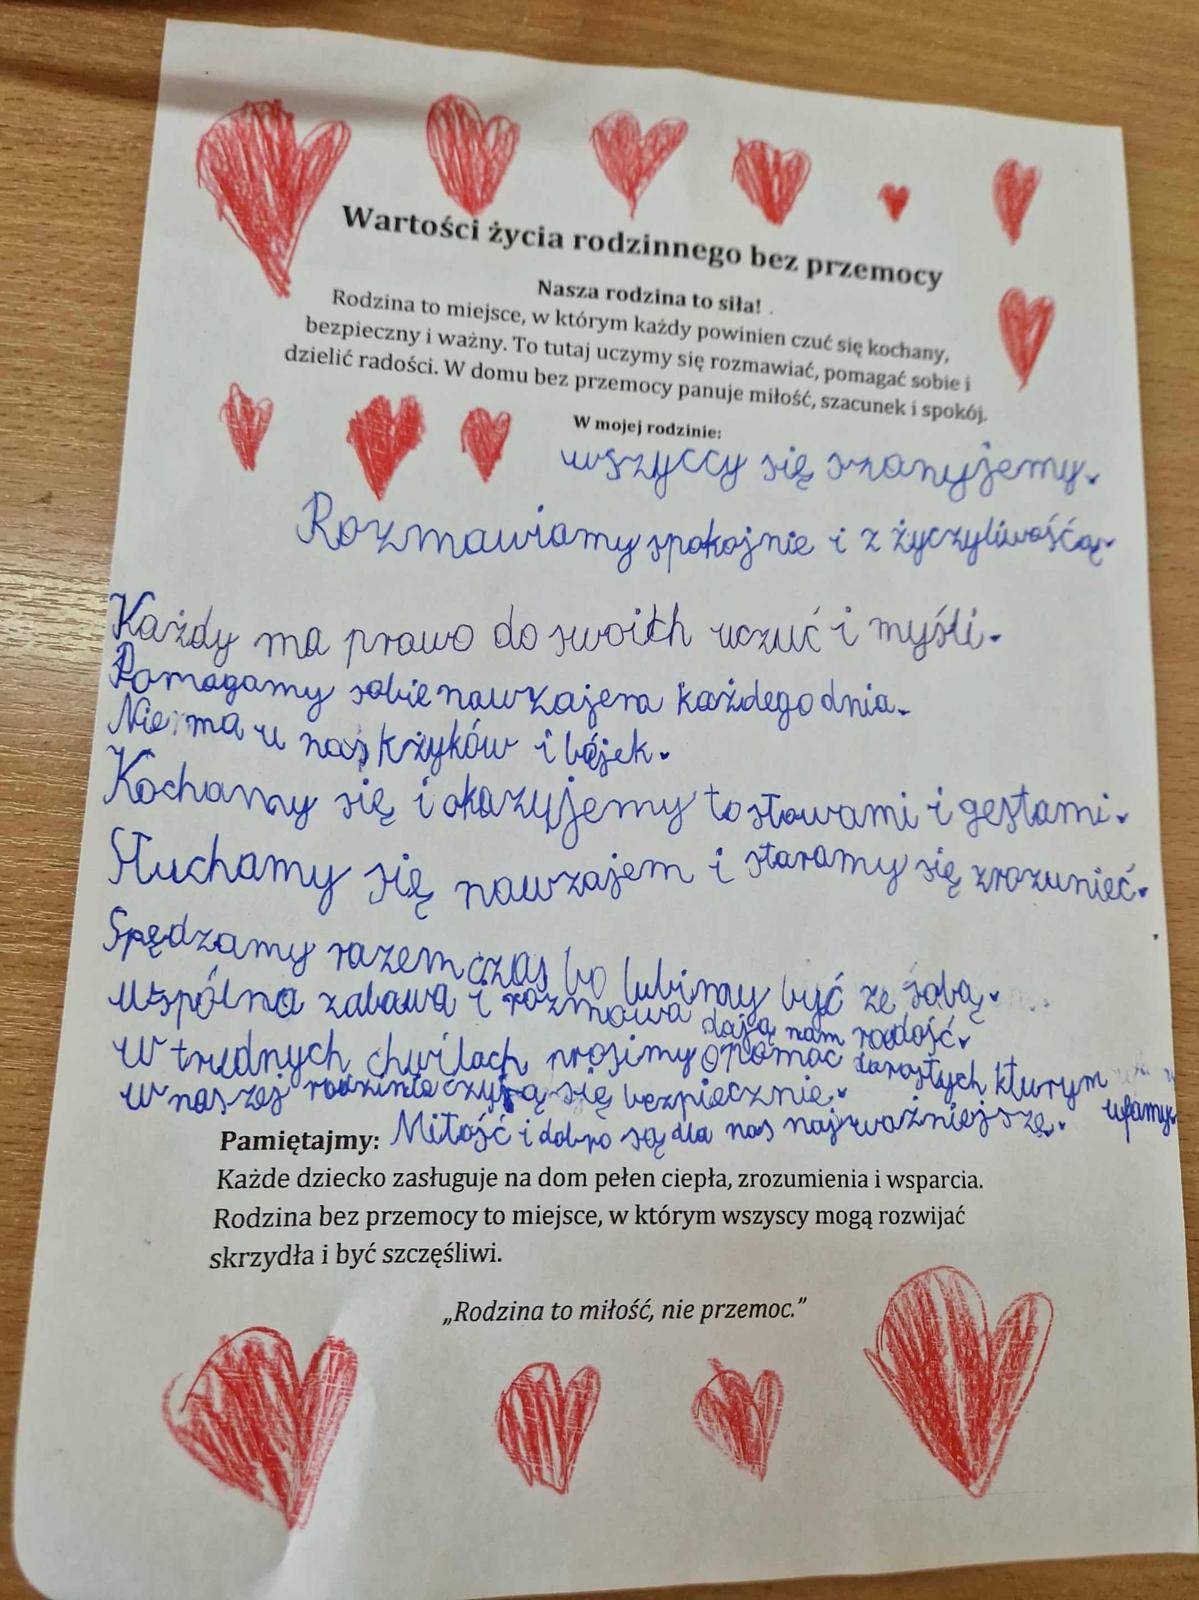 Wartości życia rodzinnego bez przemocy
Nasza rodzina to siła!
Rodzina to miejsce, w którym każdy powinien czuć się kochany,
bezpieczny i ważny. To tutaj uczymy się rozmawiać, pomagać sobie i
dzielić radości. W domu bez przemocy panuje miłość, szacunek i spokój.
W mojej rodzinie:
wszyccy się szanujemy.
Rozmawiamy spokojnie i z życzyliwośćą.
Każdy ma prawo do swoich uczuć i myśli.
Pomagamy sobie nawzajem każdego dnia.
Nie ma u nas kżyków i bójek.
Kochamy się i okazujemy to słowami i gestami.
Słuchamy się nawzajem i staramy się zrozumieć.
Spędzamy razem czas bo lubimy być ze sobą.
Wspólna zabawa i rozmowa dają nam radość.
W trudnych chwilach prosimy o pomoc dorosłych kturym ufamy.
W naszej rodzinie czują się bezpiecznie.
Pamiętajmy: Miłość i dobro są dla nas najważniejsze.
Każde dziecko zasługuje na dom pełen ciepła, zrozumienia i wsparcia.
Rodzina bez przemocy to miejsce, w którym wszyscy mogą rozwijać
skrzydła i być szczęśliwi.
„Rodzina to miłość, nie przemoc.”